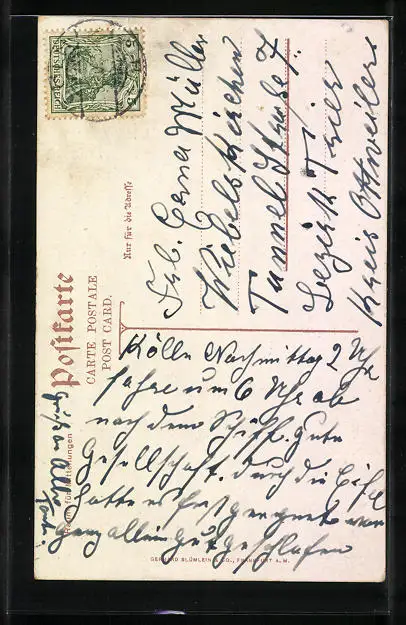 Postkarte
CARTE POSTALE
POST CARD.
Nur für die Adresse
DEUTSCHES REICH
Frl. Erna Müller
Wiebelskirchen
Tunnel Straße 7.
Bezirk Trier
Kreis Ottweiler
Kölln Nachmittag 2 Uhr
fahre um 6 Uhr ab
nach dem Schiff. gute
Gesellschaft. Durch die Eifel
hatte es fest geregnet
ganz allein gut geschlafen
Gruß an Alle
GERHARD BLÜMLEIN & CO., FRANKFURT A. M.